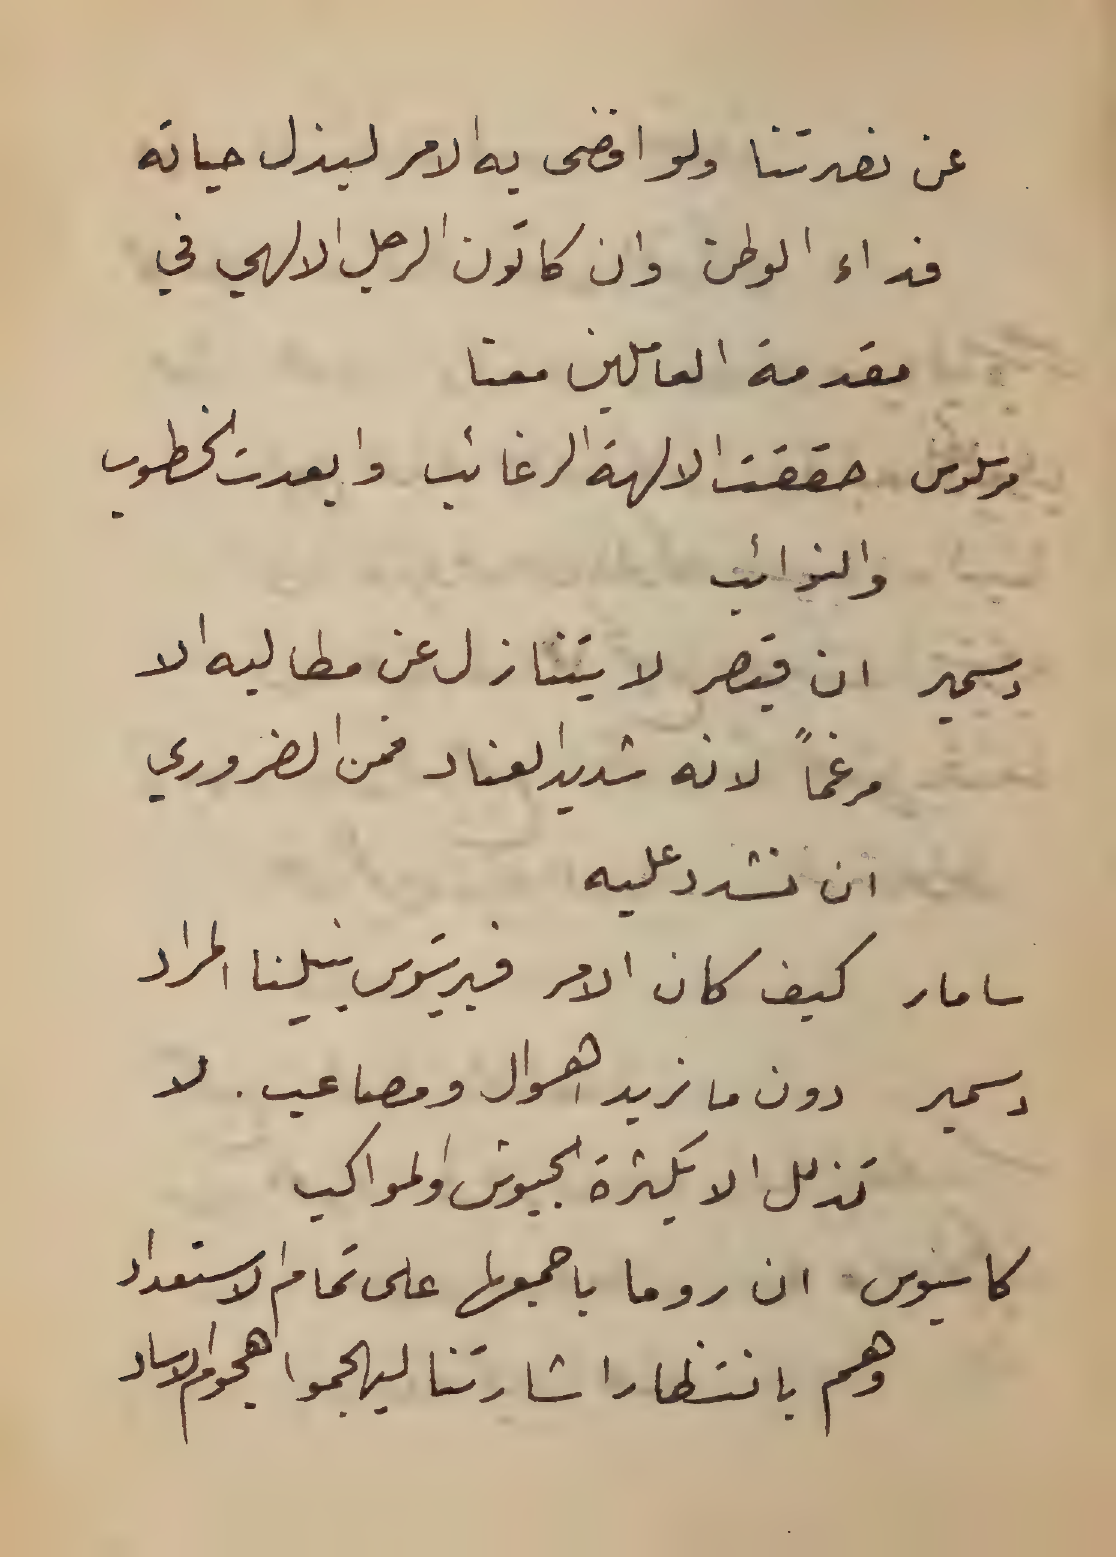 عن نصرتنا ولو افضى به الامر لبذل حياته
فداء الوطن وان كاتون الرجل الالهي في
مقدمة العاملين معنا
مرسلوس حققت الالهة الرغائب وابعدت الخطوب
والنوائب
دسمير ان قيصر لا يتنازل عن مطاليبه الا
مرغماً لانه شديد العناد فمن الضروري
ان نشدد عليه
سامار كيف كان الامر فبريتوس ينيلنا المراد
دسمير دون ما نريد اهوال ومصاعب. لا
تذلل الا بكثرة الجيوش والمواكب
كاسيوس ان روما باجمعها على تمام الاستعداد
وهم بانتظار اشارتنا ليهجموا هجوم الاساد